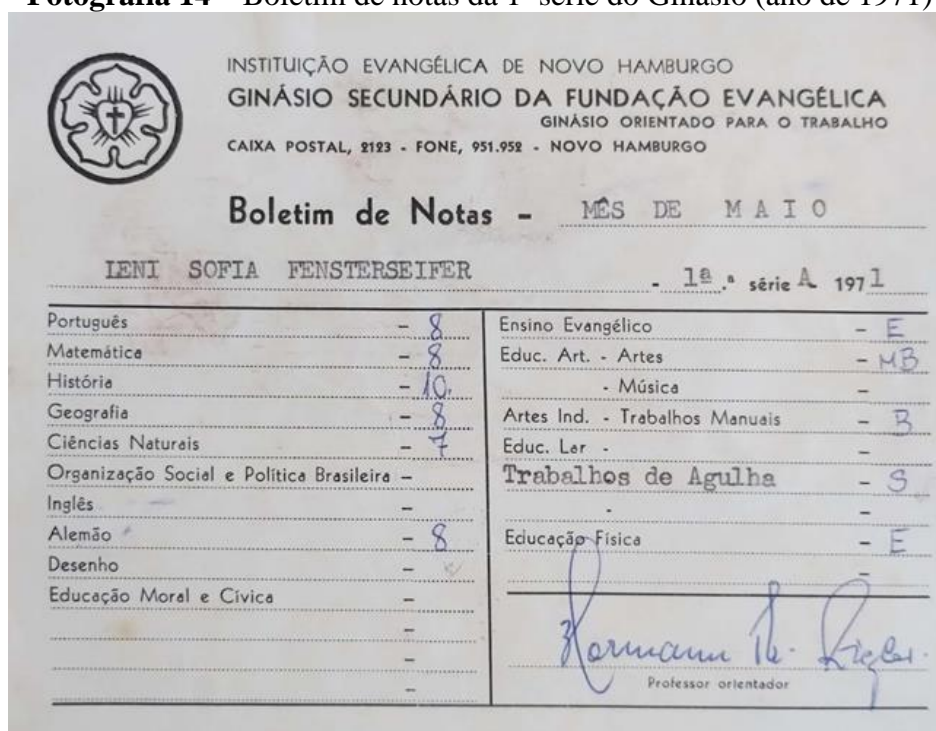 Fotografia 14 – Boletim de notas da 1ª série do Ginásio (ano de 1971)
INSTITUIÇÃO EVANGÉLICA DE NOVO HAMBURGO
GINÁSIO SECUNDÁRIO DA FUNDAÇÃO EVANGÉLICA
GINÁSIO ORIENTADO PARA O TRABALHO
CAIXA POSTAL, 2123 - FONE, 951.952 - NOVO HAMBURGO
Boletim de Notas - MÊS DE MAIO
IENI SOFIA FENSTERSEIFER - 1ª.ª série A 1971
Português – 8
Matemática – 8
História – 10.
Geografia – 8
Ciências Naturais – 7
Organização Social e Política Brasileira –
Inglês –
Alemão – 8
Desenho –
Educação Moral e Cívica –
–
–
–
Ensino Evangélico – E
Educ. Art. - Artes – MB
- Música –
Artes Ind. - Trabalhos Manuais – B
Educ. Lar - –
Trabalhos de Agulha – S
- –
Educação Física – E
–
Hermann
Professor orientador